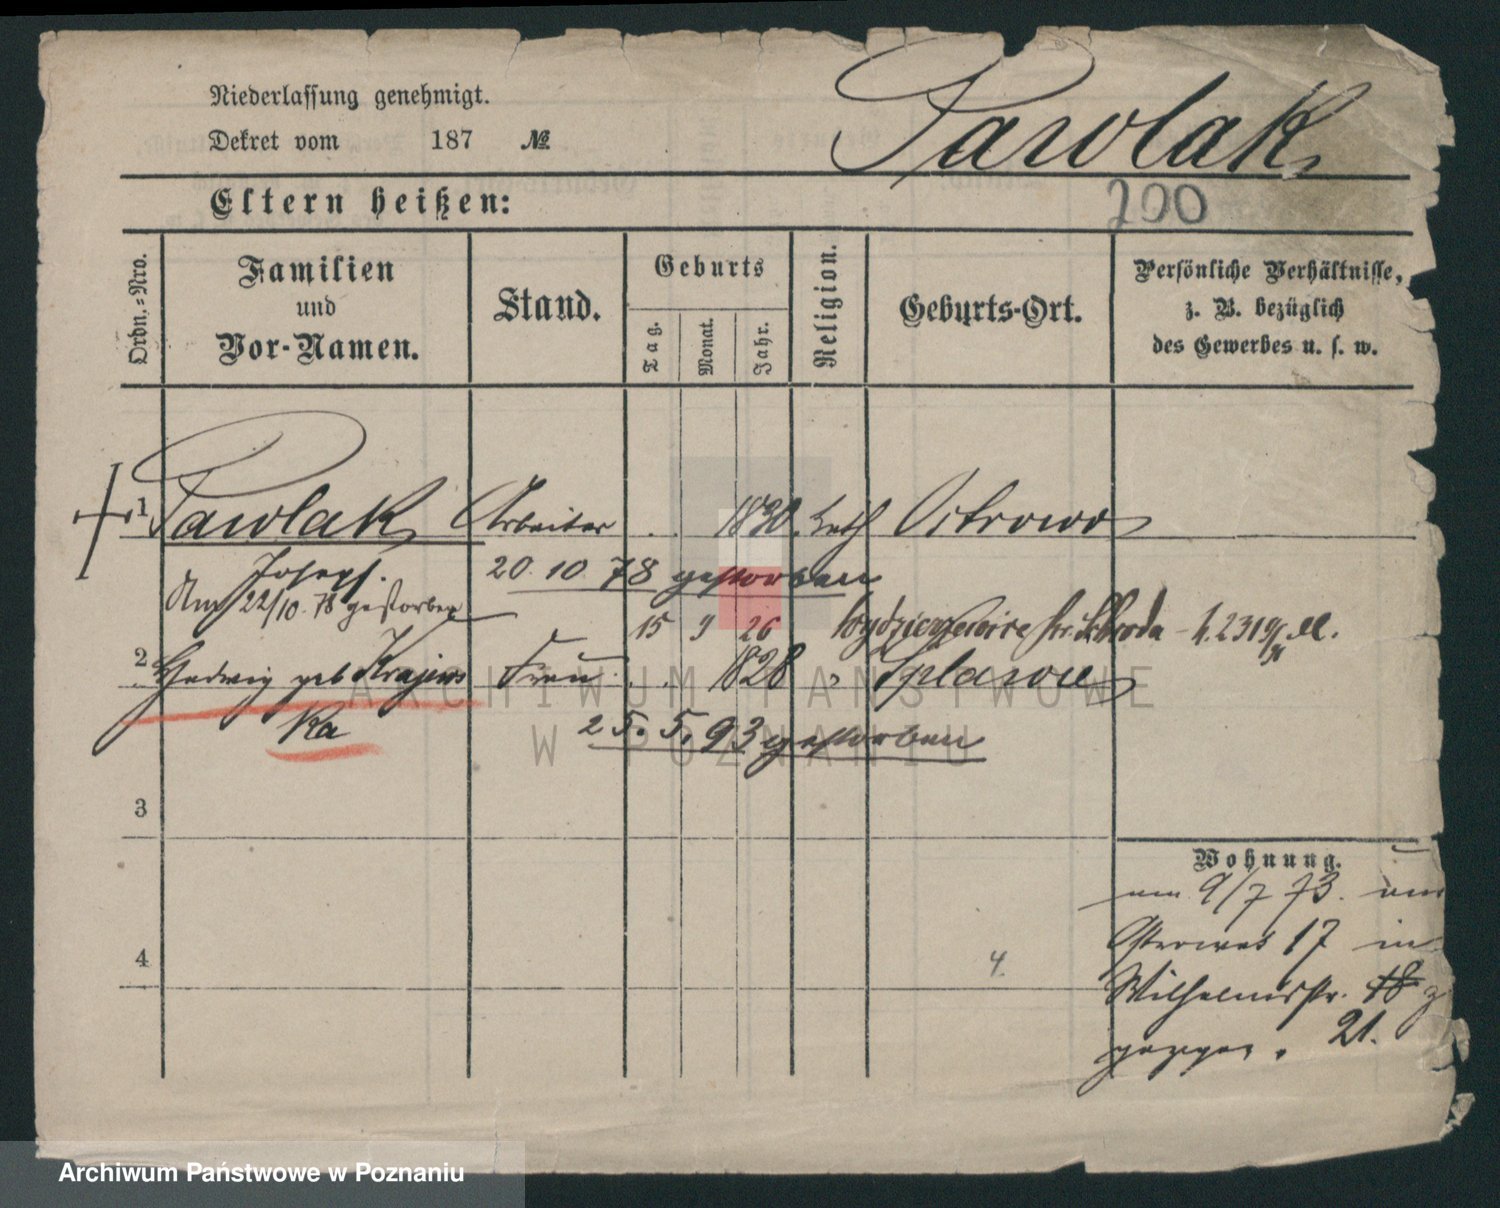 Niederlassung genehmigt.
Dekret vom 187 №
Pawlak
Eltern heißen:
200
Ordn.=Nro.
Familien
und
Vor-Namen.
Stand.
Geburts
Tag.
Monat.
Jahr.
Religion.
Geburts-Ort.
Persönliche Verhältnisse,
z. B. bezüglich
des Gewerbes u. s. w.
1 Pawlak Arbeiter . . 1830. kath Ostrowo
Joseph.
20. 10. 78 gestorben
Am 22/10. 78 gestorben
15 9 26 Schroda
2 Hedwig geb Krajews Frau . . 1828 "
ka
25. 5. 93 gestorben
3
Wohnung.
am 9/7 73. von
17 in
4 4. Wilhelmstr. 18
gezogen. 21.
ARCHIWUM PAŃSTWOWE
W POZNANIU
Archiwum Państwowe w Poznaniu